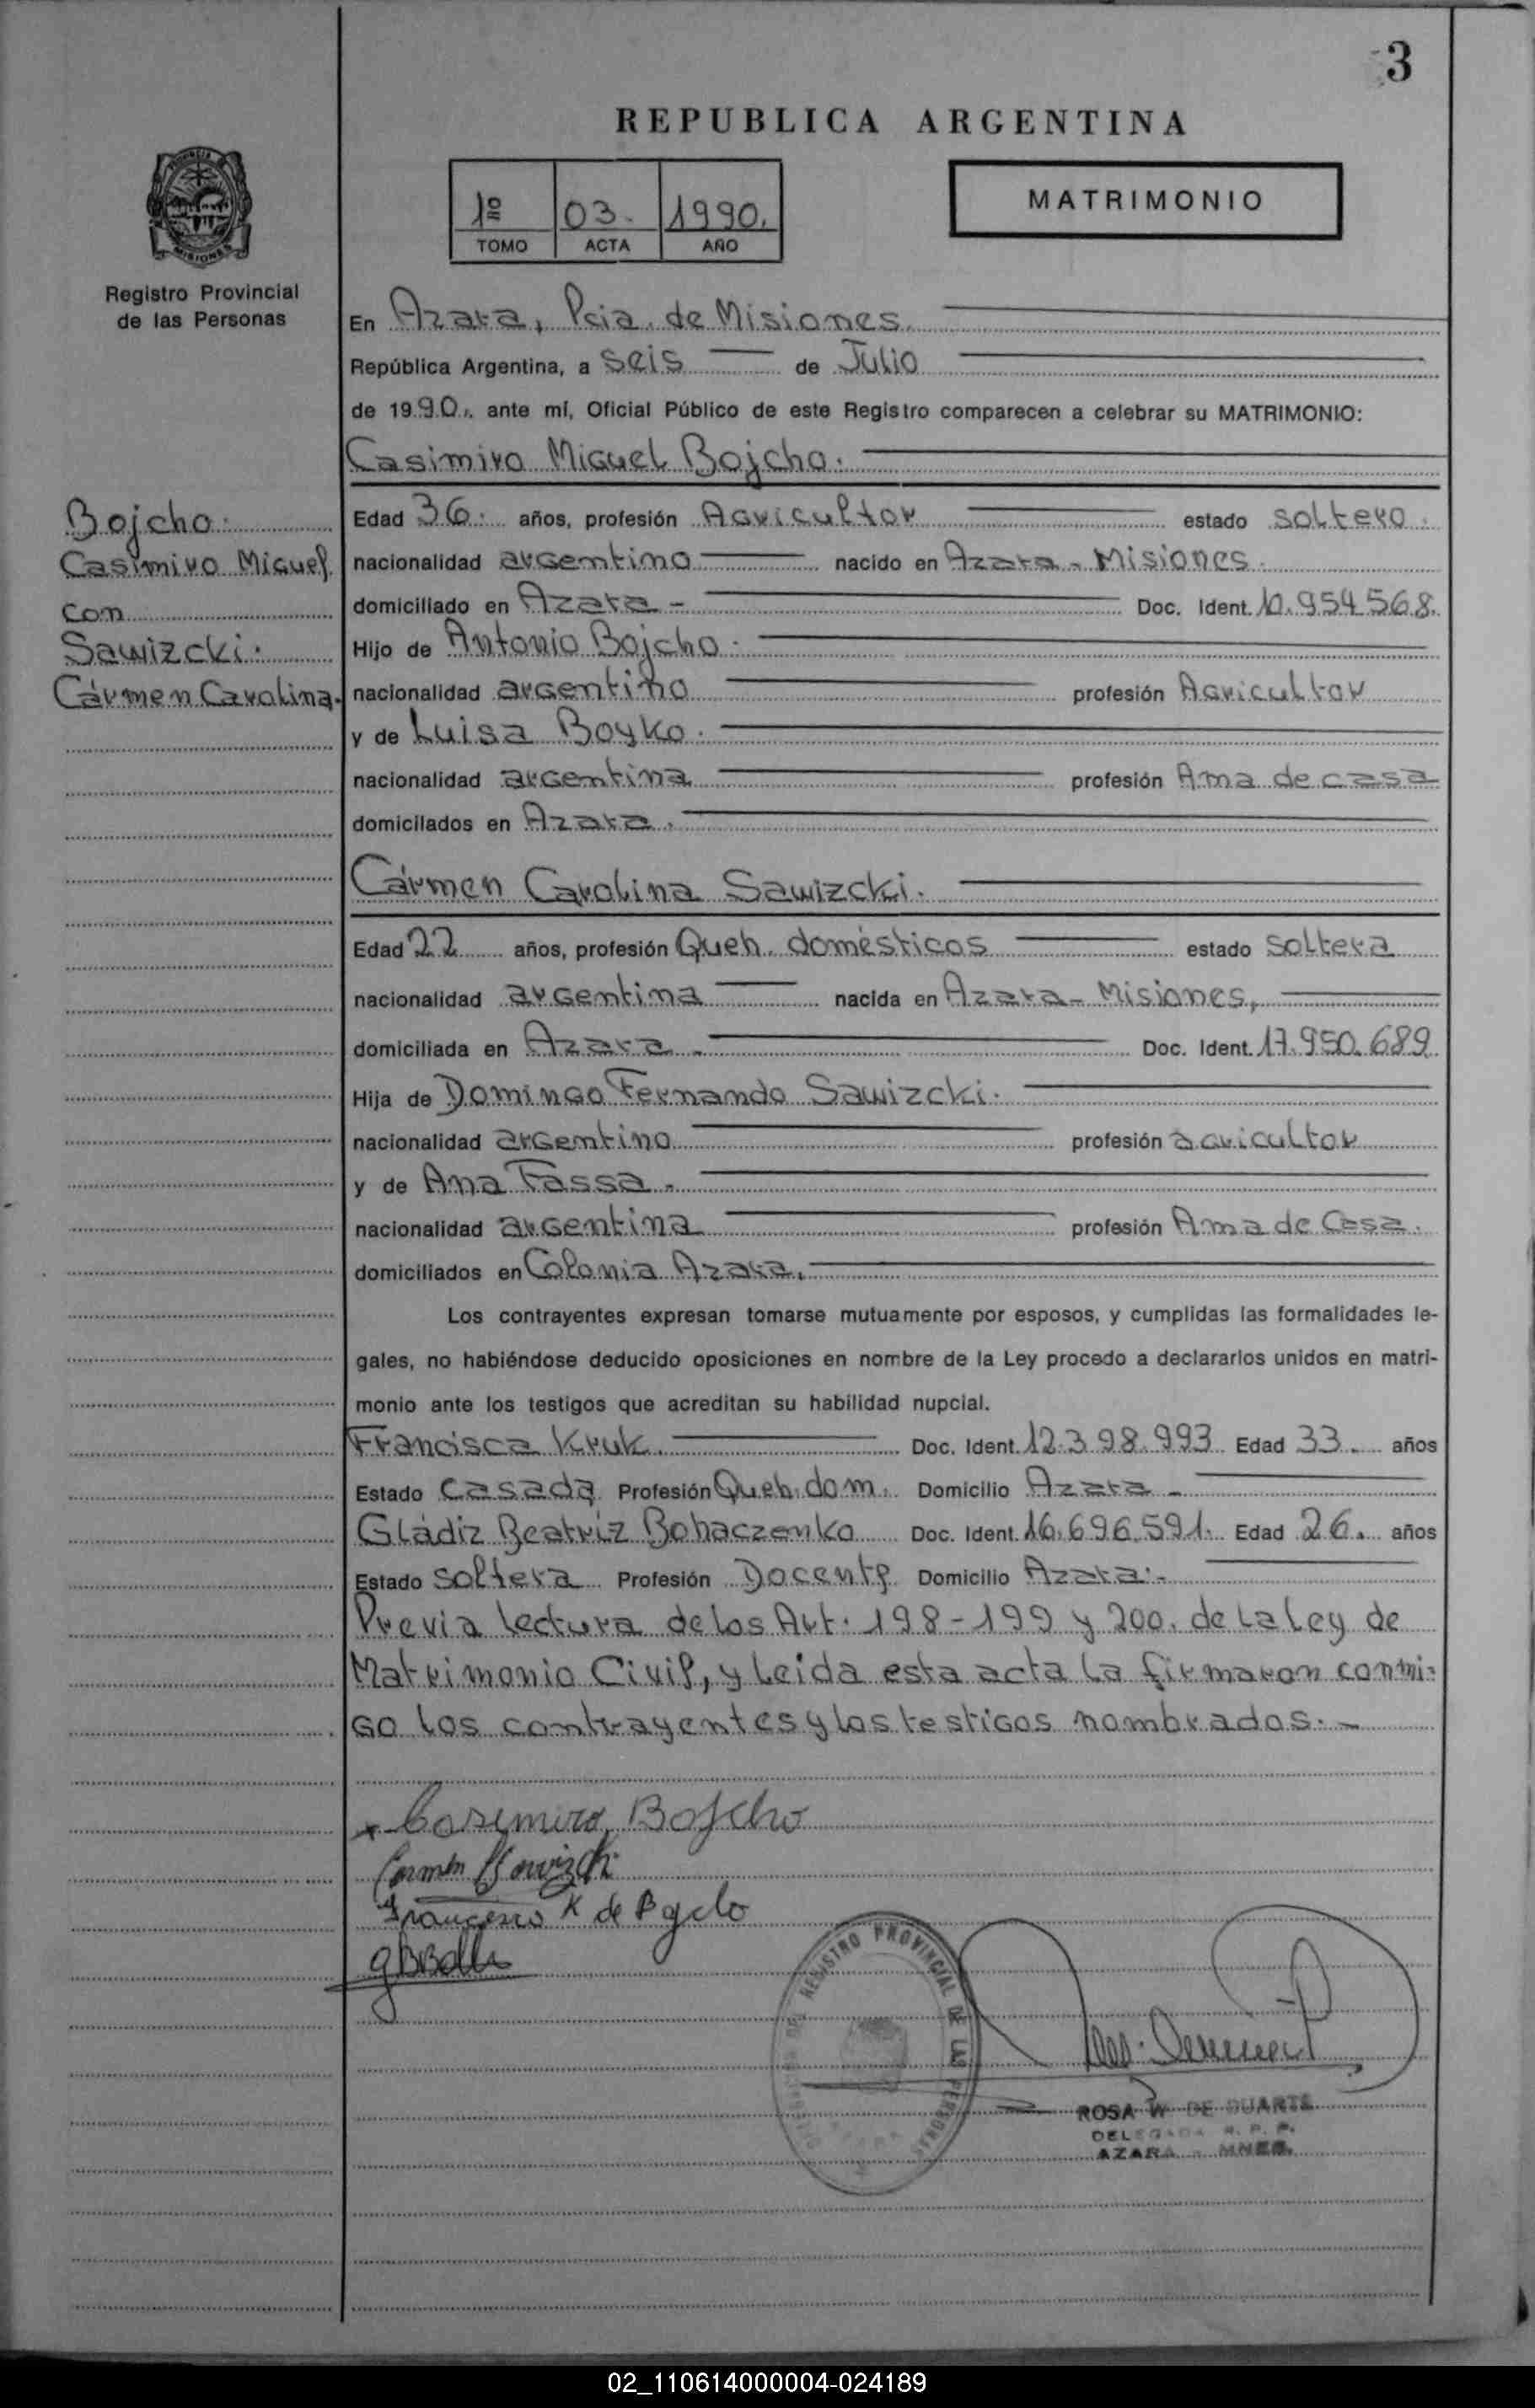 3
REPUBLICA ARGENTINA
PROVINCIA DE
MISIONES
Registro Provincial
de las Personas
1º 03. 1990.
TOMO ACTA AÑO
MATRIMONIO
En Azara, Pcia. de Misiones.
República Argentina, a seis de Julio
de 1990., ante mí, Oficial Público de este Registro comparecen a celebrar su MATRIMONIO:
Casimiro Miguel Bojcho.
Bojcho.
Casimiro Miguel
con
Sawizcki.
Cármen Carolina.
Edad 36. años, profesión Agricultor estado soltero.
nacionalidad argentino nacido en Azara - Misiones.
domiciliado en Azara - Doc. Ident. 10.954.568.
Hijo de Antonio Bojcho.
nacionalidad argentino profesión Agricultor
y de Luisa Boyko.
nacionalidad argentina profesión Ama de casa
domicilados en Azara.
Cármen Carolina Sawizcki.
Edad 22 años, profesión Queh. domésticos estado soltera
nacionalidad argentina nacida en Azara - Misiones,
domiciliada en Azara. Doc. Ident. 17.950.689
Hija de Domingo Fernando Sawizcki.
nacionalidad argentino profesión agricultor
y de Ana Fassa.
nacionalidad argentina profesión Ama de Casa.
domiciliados en Colonia Azara.
Los contrayentes expresan tomarse mutuamente por esposos, y cumplidas las formalidades le-
gales, no habiéndose deducido oposiciones en nombre de la Ley procedo a declararlos unidos en matri-
monio ante los testigos que acreditan su habilidad nupcial.
Francisca Kruk. Doc. Ident. 12.398.993 Edad 33. años
Estado casada Profesión Queh. dom. Domicilio Azara -
Gládiz Beatriz Bohaczenko Doc. Ident. 16.696.591. Edad 26. años
Estado soltera Profesión Docente Domicilio Azara.-
Previa lectura de los Art. 198-199 y 200. de la Ley de
Matrimonio Civil, y leida esta acta la firmaron conmi-
go los contrayentes y los testigos nombrados.-
Casimiro Bojcho
Carmen Sawizcki
K de Bojcho
REGISTRO PROVINCIAL DE LAS PERSONAS
ROSA W DE DUARTE
DELEGADA R. P. P.
AZARA - MNES.
02_110614000004-024189